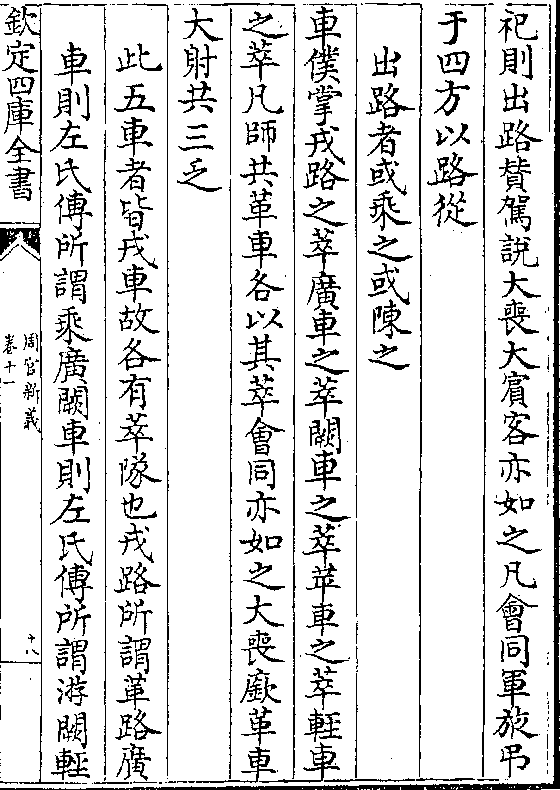 祀則出路賛駕說大喪大賓客亦如之凡會同軍旅弔
于四方以路從
出路者或乘之或陳之
車僕掌戎路之萃廣車之萃闕車之萃苹車之萃輕車
之萃凡師共革車各以其萃會同亦如之大喪廞革車
大射共三乏
此五車者皆戎車故各有萃隊也戎路所謂革路廣
車則左氏傳所謂乘廣闕車則左氏傳所謂游闕輕
欽定四庫全書
周官新義
卷十一
十八